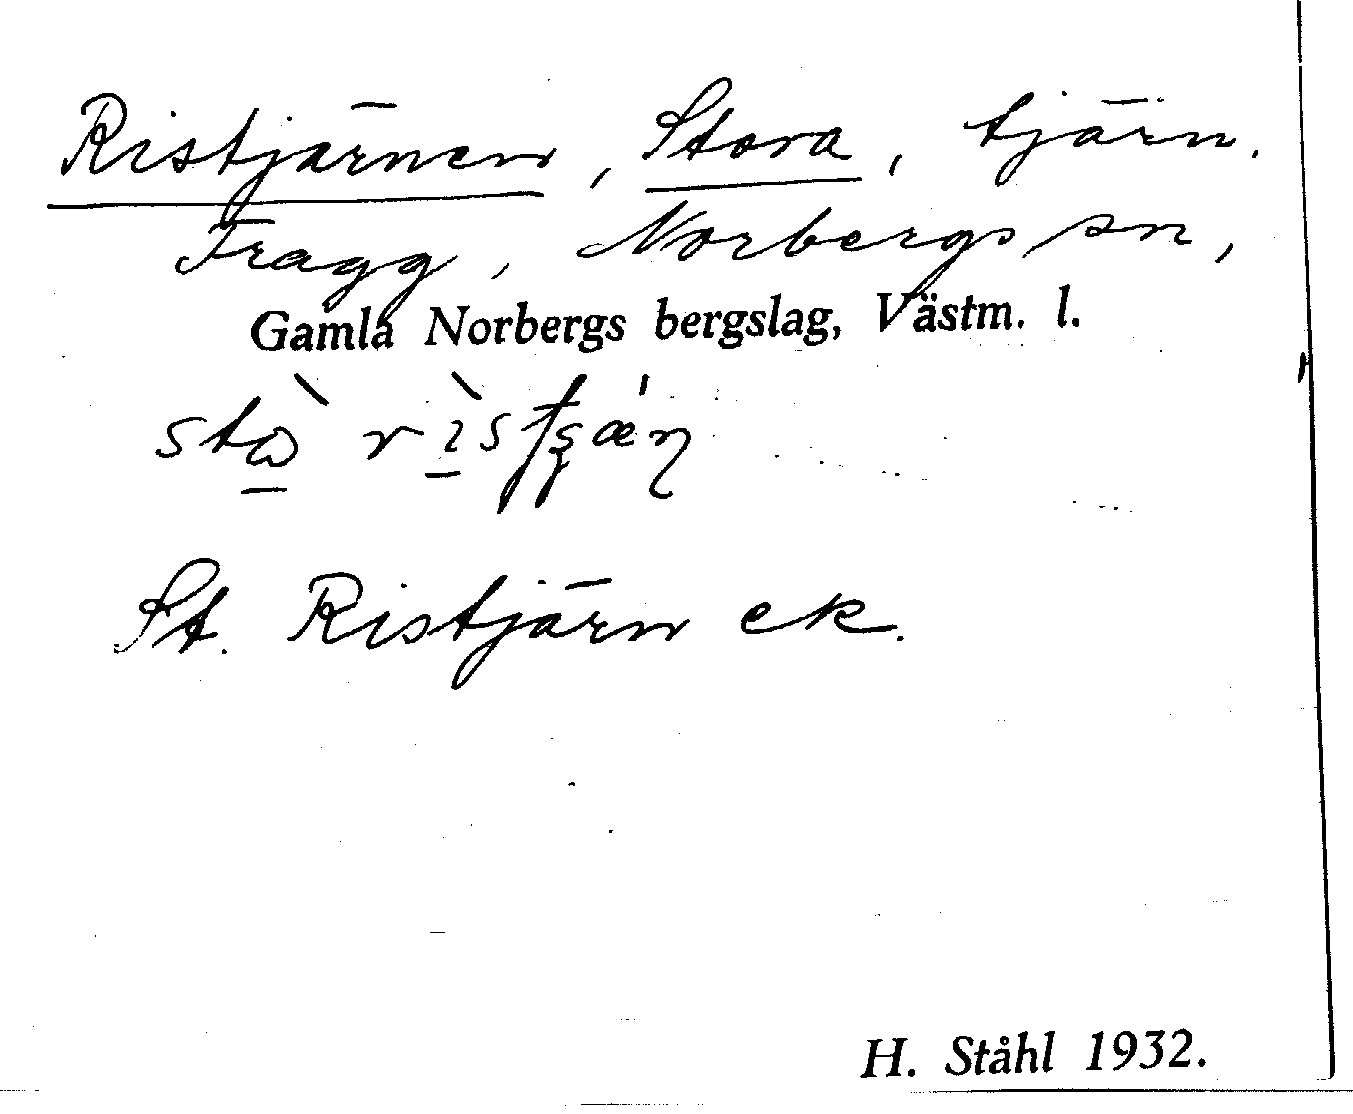 Ristjärnen, Stora, tjärn.
Fragg, Norbergs sn,
Gamla Norbergs bergslag, Västm. l.
St. Ristjärn ek.
H. Ståhl 1932.